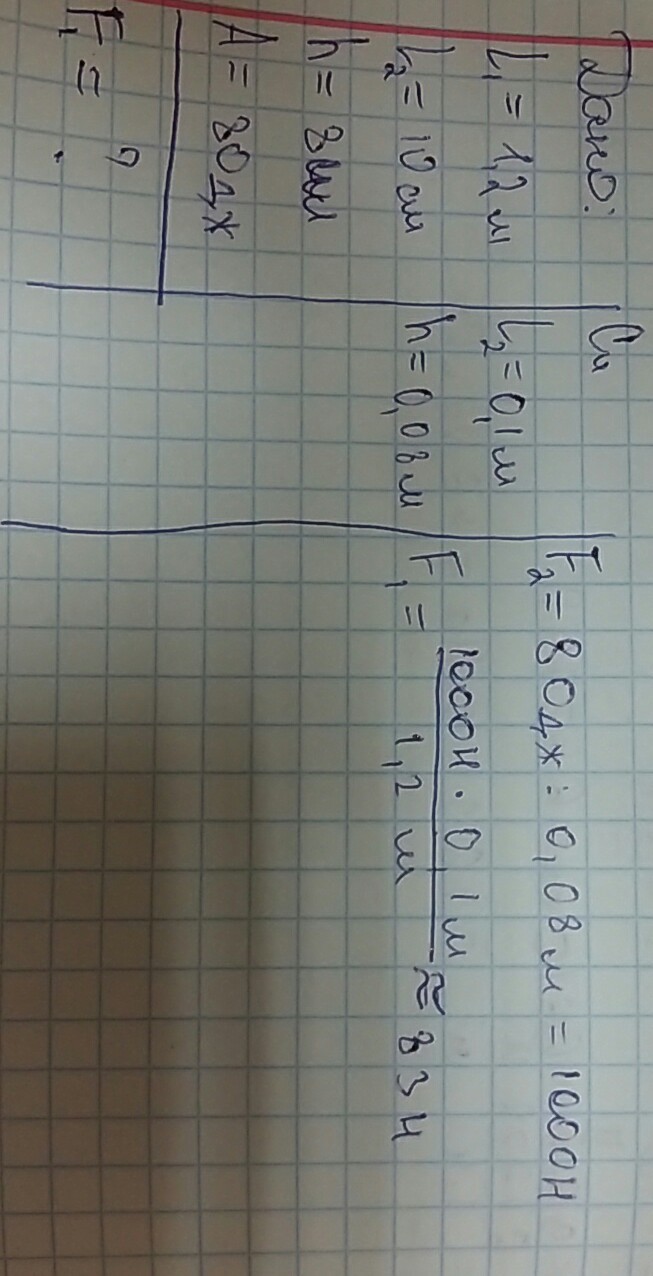 Дано:
L₁ = 1,2 м
L₂ = 10 см
h = 8см
A = 80дж
F₁ = ?
Си
L₂ = 0,1 м
h = 0,08 м
F₂ = 80дж : 0,08 м = 1000Н
F₁ = 1000Н · 0,1м / 1,2 м ≈ 83Н